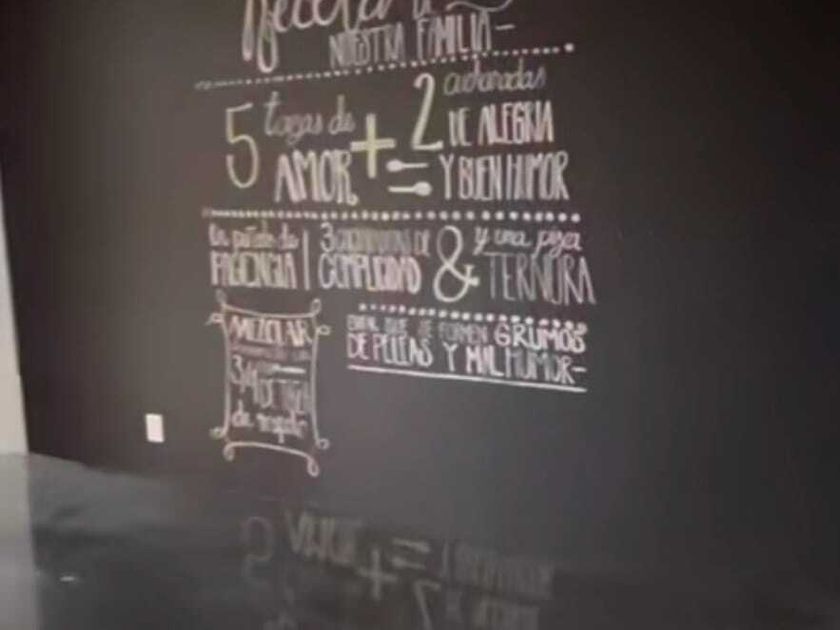 Receta de
NUESTRA FAMILIA
5 tazas de AMOR + 2 cucharadas
DE ALEGRIA
Y BUEN HUMOR
un puñado de PACIENCIA
3 cucharadas de COMPLICIDAD
& y una pizca
TERNURA
MEZCLAR
3/4 DE TAZA
de respeto
EVITAR QUE SE FORMEN GRUMOS
DE PELEAS Y MAL HUMOR-